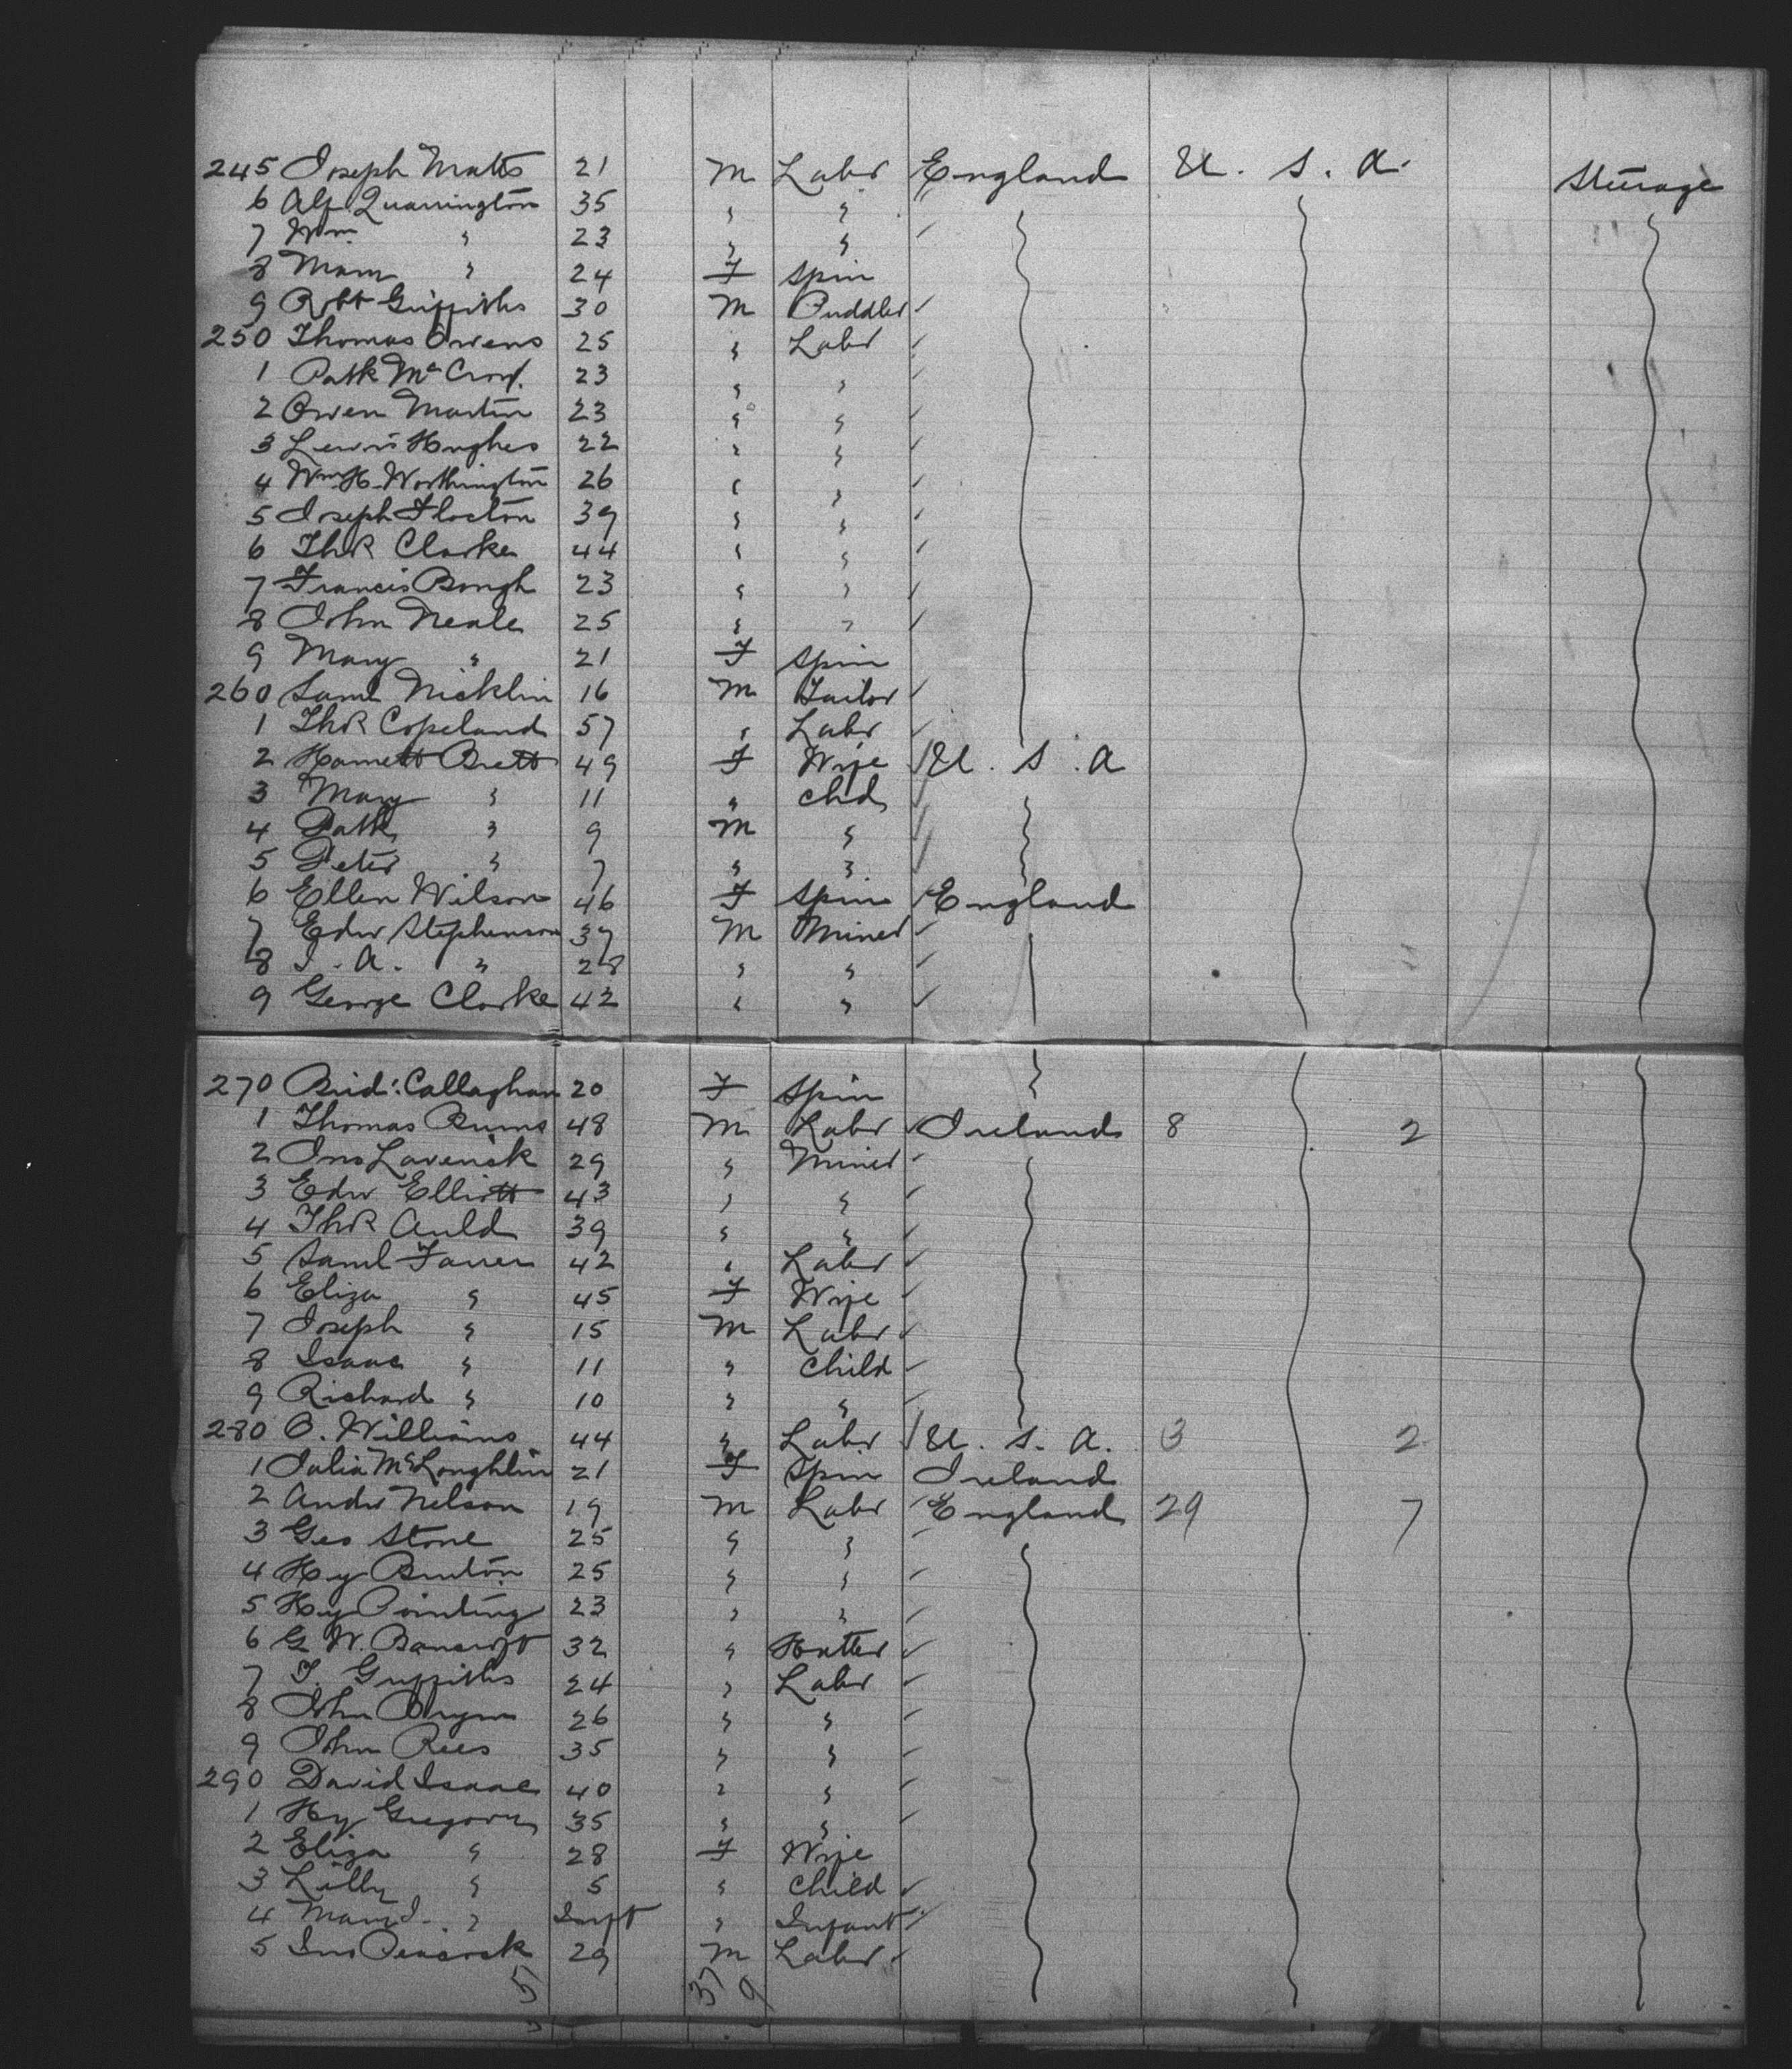 245 Joseph Matts 21 M Labr England U. S. A. Steerage
6 Alf Quarrington 35 " "
7 Wm " 23 " "
8 " 24 F Spin
9 Robt Griffiths 30 M Puddler
250 Thomas Owens 25 " Labr
1 Patk 23 " "
2 Owen Martin 23 " "
3 Lewis Hughes 22 " "
4 Wm H. Worthington 26 " "
5 Joseph 39 " "
6 Clarke 44 " "
7 Francis Bough 23 " "
8 John Neale 25 " "
9 Mary " 21 F Spin
260 Saml Nicklin 16 M Tailor
1 Copeland 57 " Labr
2 Brett 49 F Wife U. S. A
3 Mary " 11 " Chd
4 Patk " 9 M "
5 Peter " 7 " "
6 Ellen Wilson 46 F Spin England
7 Edw Stephenson 37 M Miner
8 J. A. " 28 " "
9 George Clarke 42 " "
270 Brid: Callaghan 20 F Spin
1 Thomas Burns 48 M Labr Ireland 8 2
2 Jno 29 " Miner
3 Edw Elliott 43 " "
4 Auld 39 " "
5 Saml Farrer 42 " Labr
6 Eliza " 45 F Wife
7 Joseph " 15 M Labr
8 Isaac " 11 " Child
9 Richard " 10 " "
280 O. Williams 44 " Labr U. S. A. 3 2
1 Julia McLoughlin 21 F Spin Ireland
2 Andw Nelson 19 M Labr England 29 7
3 Geo Stone 25 " "
4 Hy 25 " "
5 Hy Pointing 23 " "
6 G W. Bancroft 32 " Hatter
7 Griffiths 24 " Labr
8 John 26 " "
9 John Rees 35 " "
290 David Isaac 40 " "
1 Hy Gregory 35 " "
2 Eliza " 28 F Wife
3 Lilly " 5 " Child
4 " Inft " Infant
5 Jno Peacock 29 M Labr
37 9